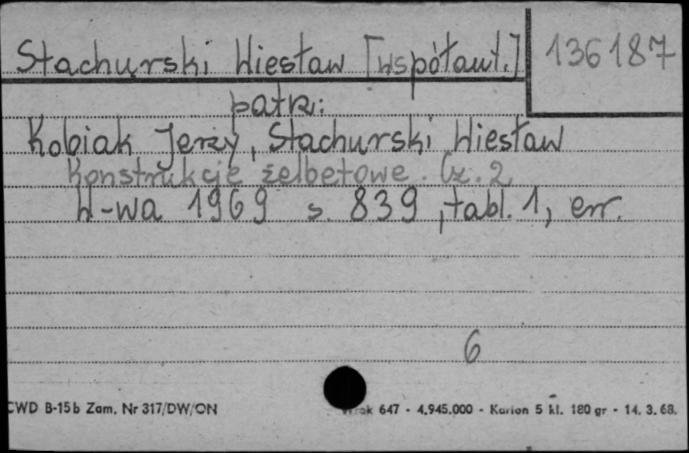 Stachurski Wiesław [współaut.] 136187
patrz:
Kobiak Jerzy, Stachurski Wiesław
Konstrukcje żelbetowe. Cz. 2
W-wa 1969 s. 839, tabl. 1, err.
6
CWD B-15b Zam. Nr 317/DW/ON 647 - 4.945.000 - Karton 5 kl. 180 gr - 14. 3. 68.